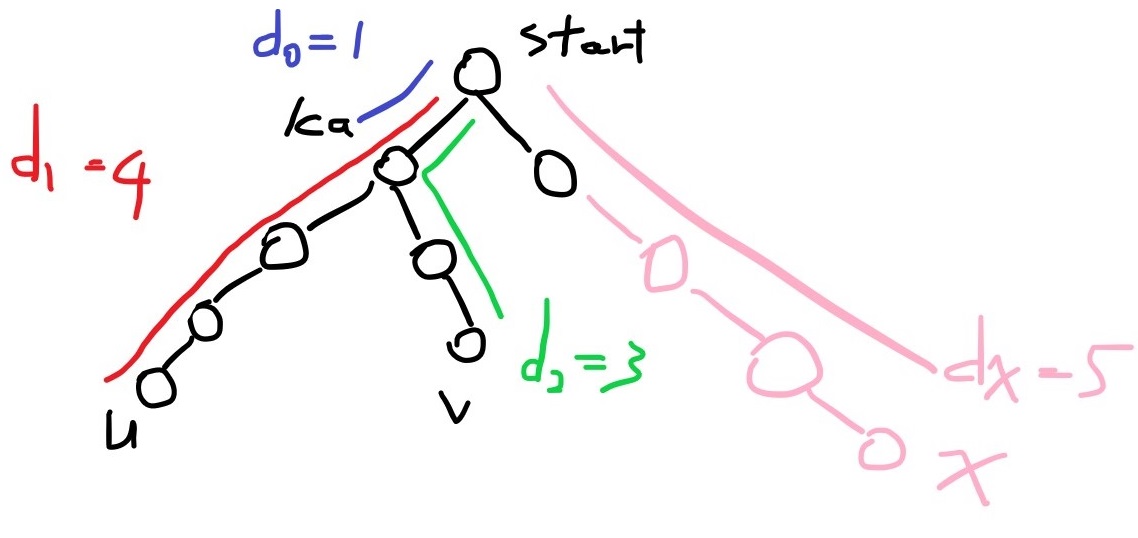 d₀=1
start
lca
d₁=4
d₂=3
dx=5
u
v
x